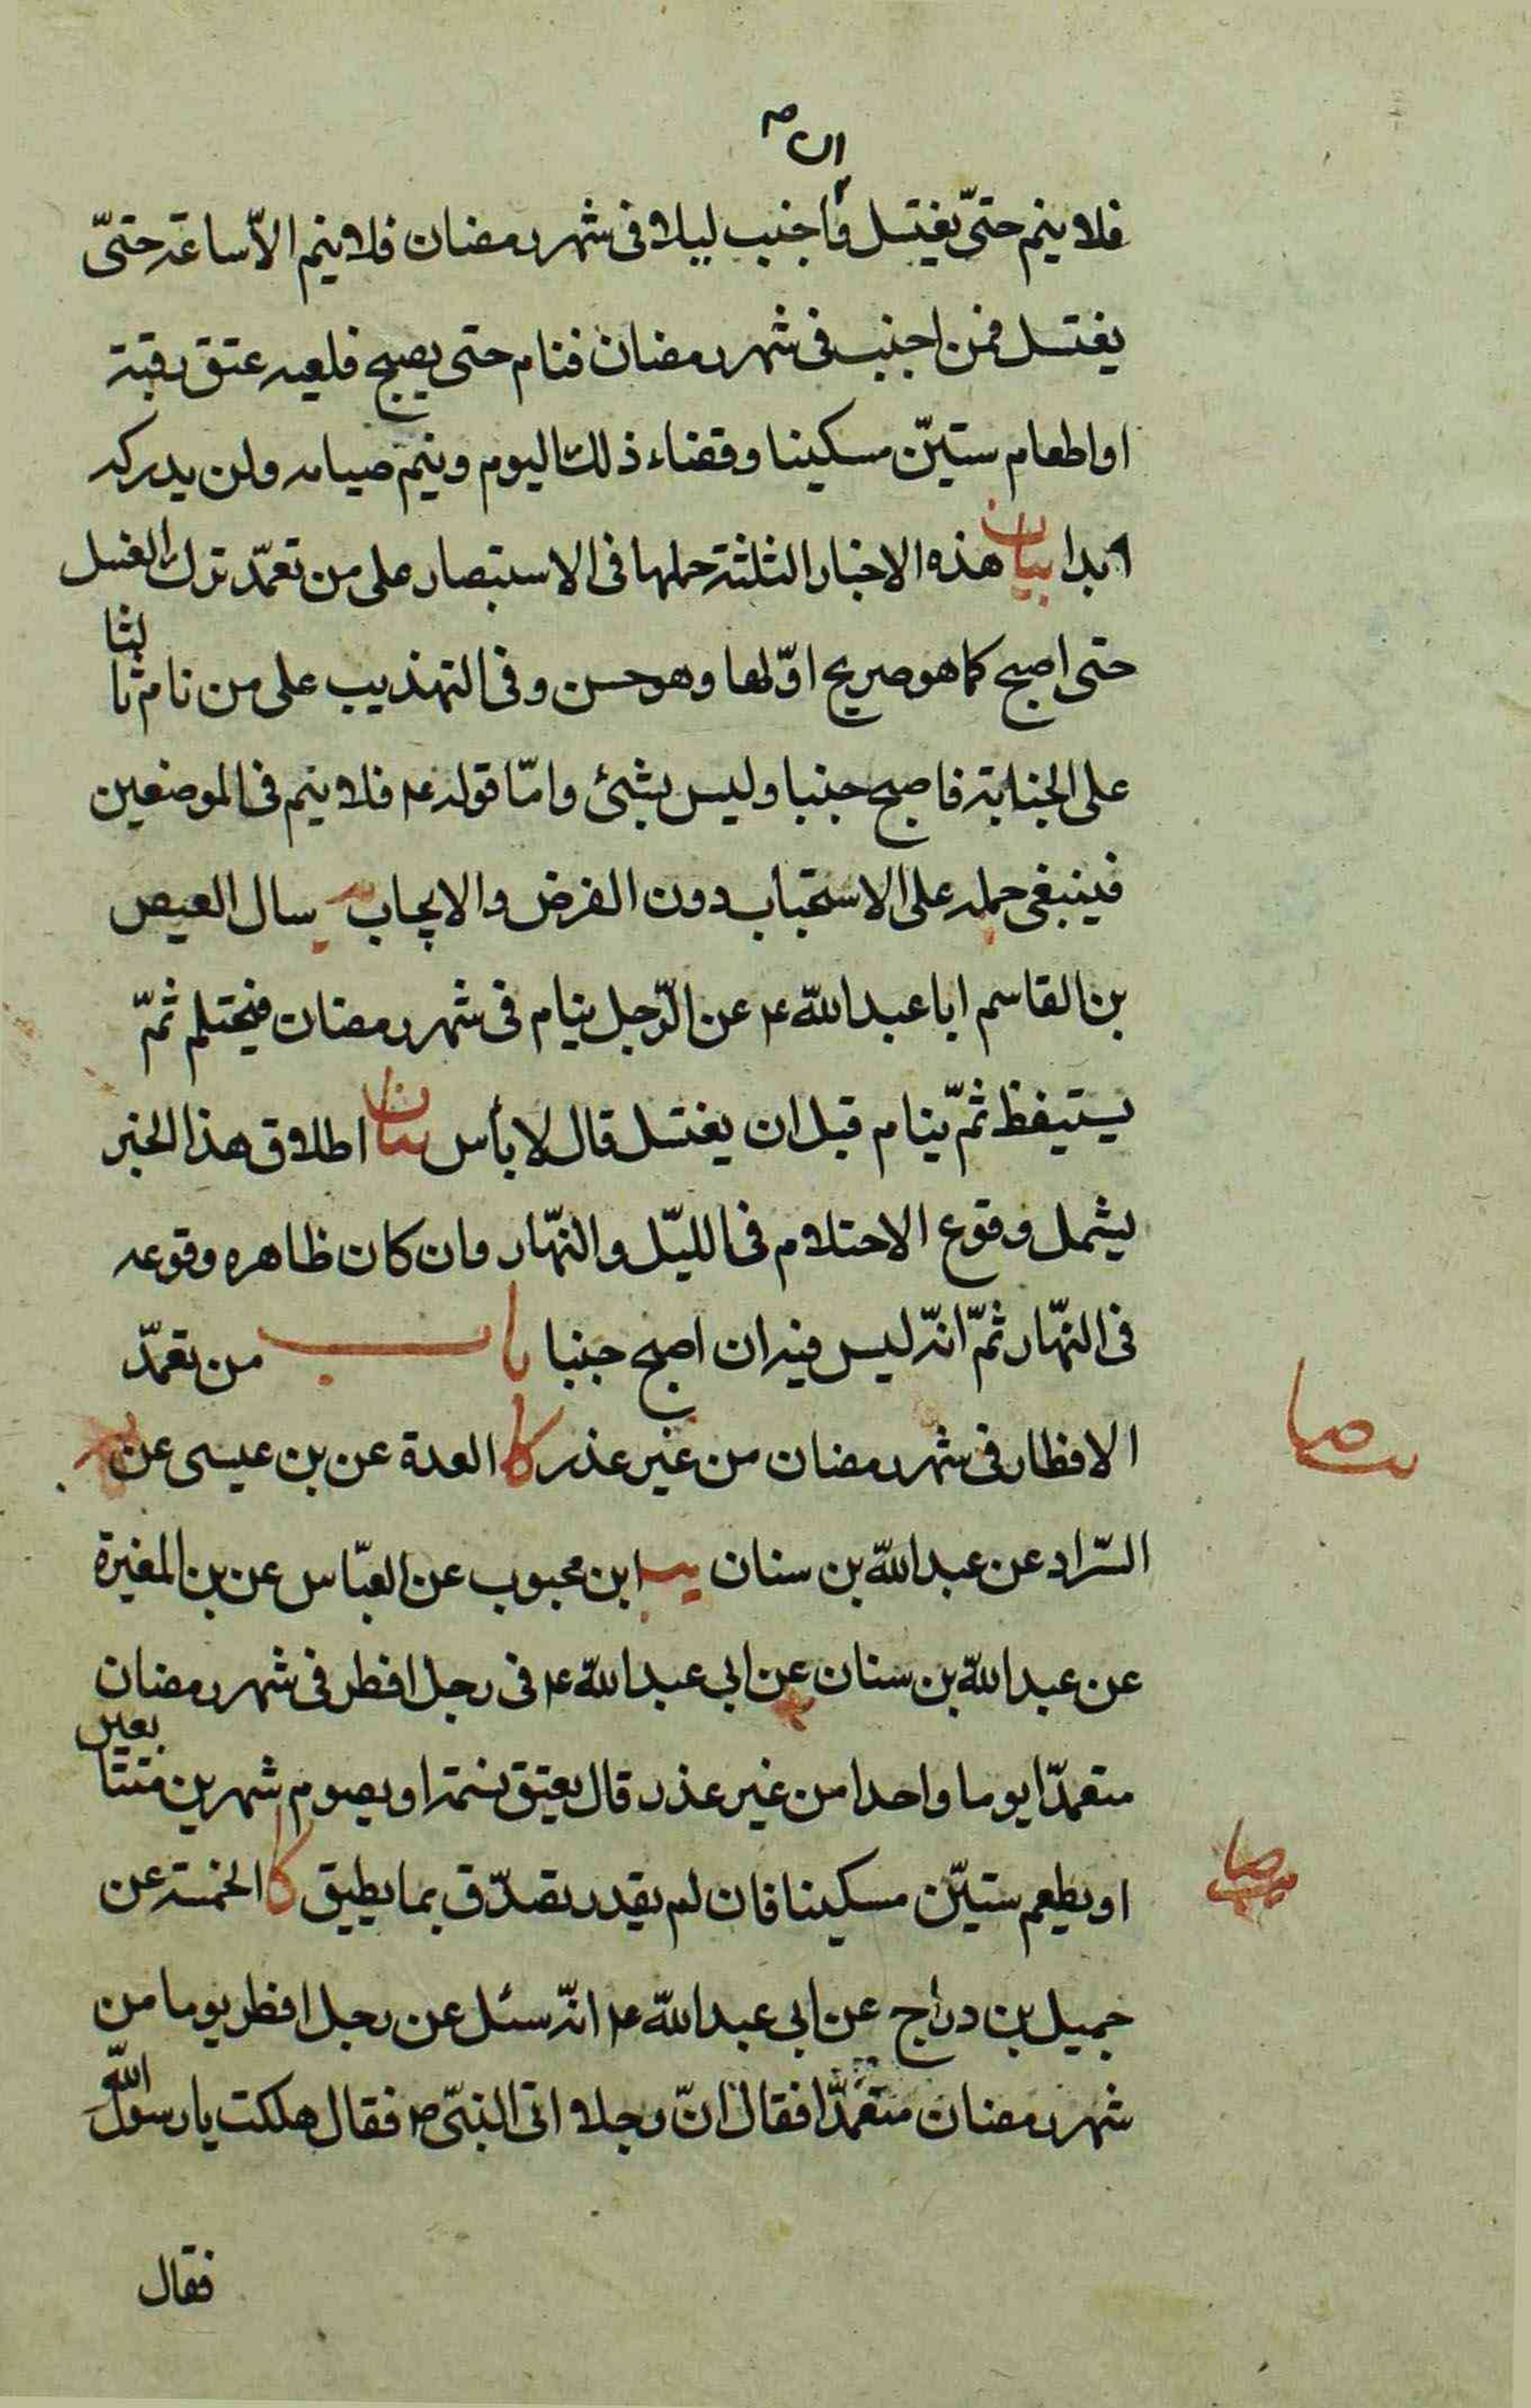 ان ص
فلا ينم حتّى يغتسل و اجنب ليلا فى شهر رمضان فلا ينم الّا ساعة حتىّ
يغتسل فمن اجنب فى شهر رمضان فنام حتى يصبح فلعيه عتق رقبة
او اطعام ستيّن مسكينا و قضاء ذلك اليوم ويتم صيامه ولن يدركه
ابدا بيان هذه الاخبار الثلثة حملها فى الاستبصار على من تعمّد ترك الغسل
حتى اصبح كما هو صريح اوّلها وهو حسن و فى التهذيب على من نام ثا لثا
على الجنابة فاصبح جنبا وليس بشئ وامّا قوله ع فلا ينم فى الموضعين
فينبغى حمله على الاستحباب دون الفرض والايجاب يه سال العيص
بن القاسم ابا عبد اللّه ع عن الرّجل ينام فى شهر رمضان فيحتلم ثمّ
يستيقظ ثمّ ينام قبل ان يغتسل قال لا بأس بيان اطلاق هذا الخبر
يشمل وقوع الاحتلام فى الليّل والنّهار وان كان ظاهره وقوعه
فى النّهار ثمّ انّه ليس فيه ان اصبح جنبا باب من تعمّد
الافطار فى شهر رمضان من غير عذر كا العدة عن بن عيسى عن
السّراد عن عبد اللّه بن سنان يب ابن محبوب عن العبّاس عن بن المغيرة
عن عبد اللّه بن سنان عن ابى عبد اللّه ع فى رجل افطر فى شهر رمضان
متعمّدا يوما واحدا من غير عذر قال يعتق نسمة او يصوم شهرين متتا بعين
او يطعم ستيّن مسكينا فان لم يقدر تصدّق بما يطيق كا الخمسة عن
جميل بن دراج عن ابى عبد اللّه ع انّه سئل عن رجل افطر يوما من
شهر رمضان متعمّدا فقال انّ رجلا اتى النبّى ص فقال هلكت يا رسول اللّه
فقال